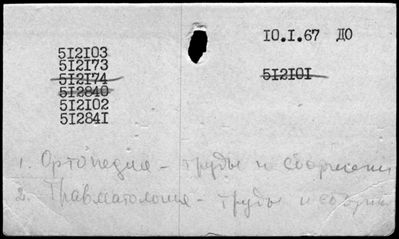 10.I.67 ДО
512103
512173
512174
512840
512102
512841
512101
1. Ортопедия - труды и сборники
2. Травматология - труды и сборник